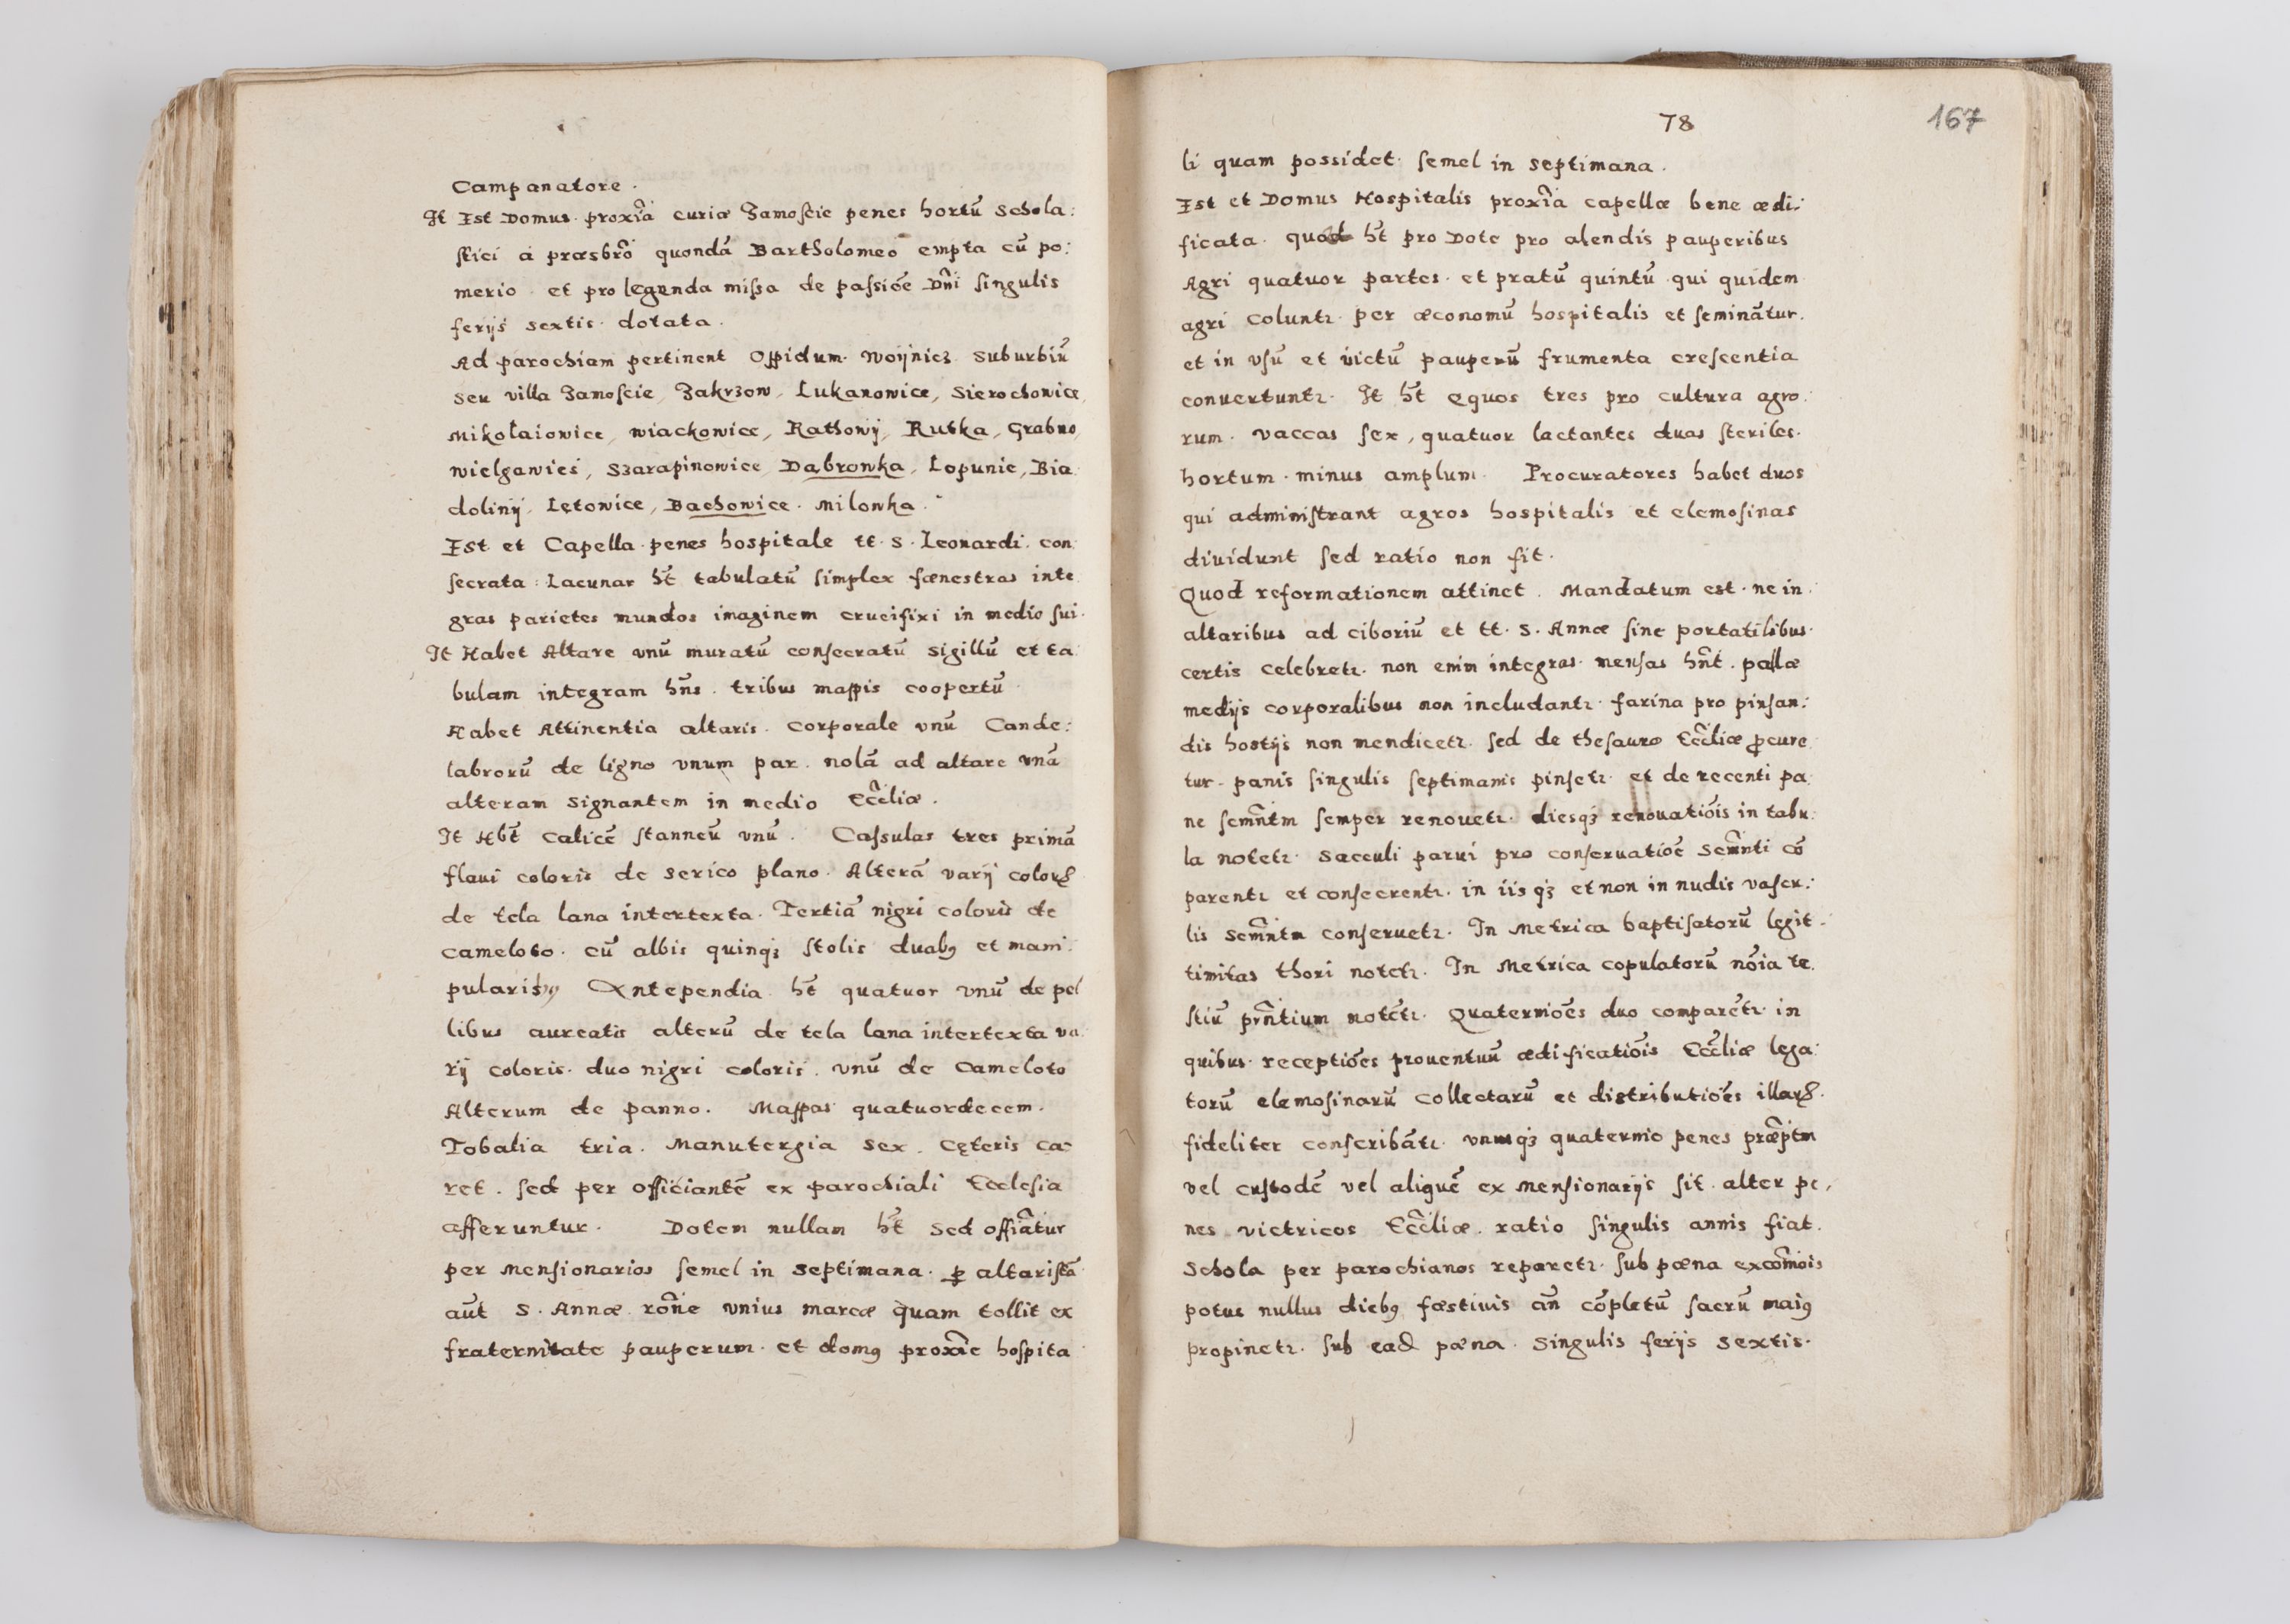 Campanatore.
It Est Domus proxĩa curiæ Zamoscie penes hortũ schola:
stici à præsbrõ quondã Bartholomeo empta cũ po:
merio et pro legenda missa de passiõe Dñi singulis
ferijs sextis dotata.
Ad parochiam pertinent Oppidum Woijnicz suburbiũ
seu villa Zamoscie, Zakrzow, Lukanowice, Sierochowice,
Mikołaiowice, Wiackowice, Rathowij, Rutka, Grabno,
Wielgawieś, Szarapinowice, Dąbrowka, Lopunie, Bia
dolinij, Lętowice, Bachowice. Milowka.
Est et Capella penes hospitale tt. S. Leonardi con
secrata: Lacunar ht̃ tabulatũ simplex fœnestras inte
gras parietes mundos imaginem crucifixi in medio sui.
It Habet Altare vnũ muratũ consecratũ sigillũ et ta
bulam integram hñs. tribus mappis coopertũ.
Habet Attinentia altaris. Corporale vnũ Cande:
labrorũ de ligno vnum par. nolã ad altare vnã
alteram signantem in medio Eccl̃iæ.
It Hbt̃ calicẽ stanneũ vnũ. Cassulas tres primã
flaui coloris de serico plano. Alterã varij colorꝭ
de tela lana intertexta. Tertiã nigri coloris de
cameloto. cũ albis quinqꝫ stolis duabꝰ et mani
pularibꝰ Antependia ht̃ quatuor vnũ de pel
libus aureatis alterũ de tela lana intertexta va
rij coloris. duo nigri coloris. vnũ de Cameloto
Alterum de panno. Mappas quatuordecem.
Tobalia tria. Manutergia sex. Cęteris ca-
ret. sed per officiantẽ ex parochiali Ecclesia
afferuntur. Dotem nullam ht̃ sed offiãtur
per Mensionarios semel in septimana. ꝑ altaristã
aũt S. Annæ rõne vnius marcæ quam tollit ex
fraternitate pauperum. et domꝰ proxĩe hospita
78
167
li quam possidet semel in septimana.
Est et Domus Hospitalis proxĩa capellæ bene ædi:
ficata. quod ht̃ pro Dote pro alendis pauperibus
Agri quatuor partes. et pratũ quintũ qui quidem
agri coluntꝛ per œconomũ hospitalis et seminãtur.
et in vsũ et victũ pauperũ frumenta crescentia
conuertuntꝛ. It ht̃ equos tres pro cultura agro:
rum. vaccas sex, quatuor lactantes duas steriles.
hortum minus amplum. Procuratores habet duos
qui administrant agros hospitalis et elemosinas
diuidunt sed ratio non fit.
Quod reformationem attinet. Mandatum est. ne in
altaribus ad ciboriũ et tt. S. Annæ sine portatilibus
certis celebretꝛ. non enim integras mensas hñt. pallæ
medijs corporalibus non includantꝛ. farina pro pinsan:
dis hostijs non mendicetꝛ. sed de thesauro Eccl̃iæ ꝓcure
tur. panis singulis septimanis pinsetꝛ. et de recenti pa
ne semñtm semper renouetꝛ. diesqꝫ renouatiõis in tabu
la notetꝛ. sacculi parui pro conseruatiõe semñti cõ
parentꝛ et consecrentꝛ. in iisqꝫ et non in nudis vascu:
lis semñtm conseruetꝛ. In Metrica baptisatorũ legit-
timitas thori notetꝛ. In Metrica copulatorũ nõia te
stiũ prñtium notẽtꝛ. Quaterniões duo comparẽtꝛ in
quibus receptiões prouentuũ ædificatiõis Eccl̃iæ lega
torũ elemosinarũ collectarũ et distributiões illarꝭ.
fideliter conscribãtꝛ. vnusqꝫ quaternio penes præp̃tm
vel custodẽ vel aliquẽ ex mensionarijs sit. alter pe,
nes victricos Eccl̃iæ. ratio singulis annis fiat.
Schola per parochianos reparetꝛ. sub pœna excõmõis
potus nullus diebꝰ fœstiuis añ cõpletũ sacrũ maiꝰ
propinetꝛ. sub ead pœna. Singulis ferijs sextis.